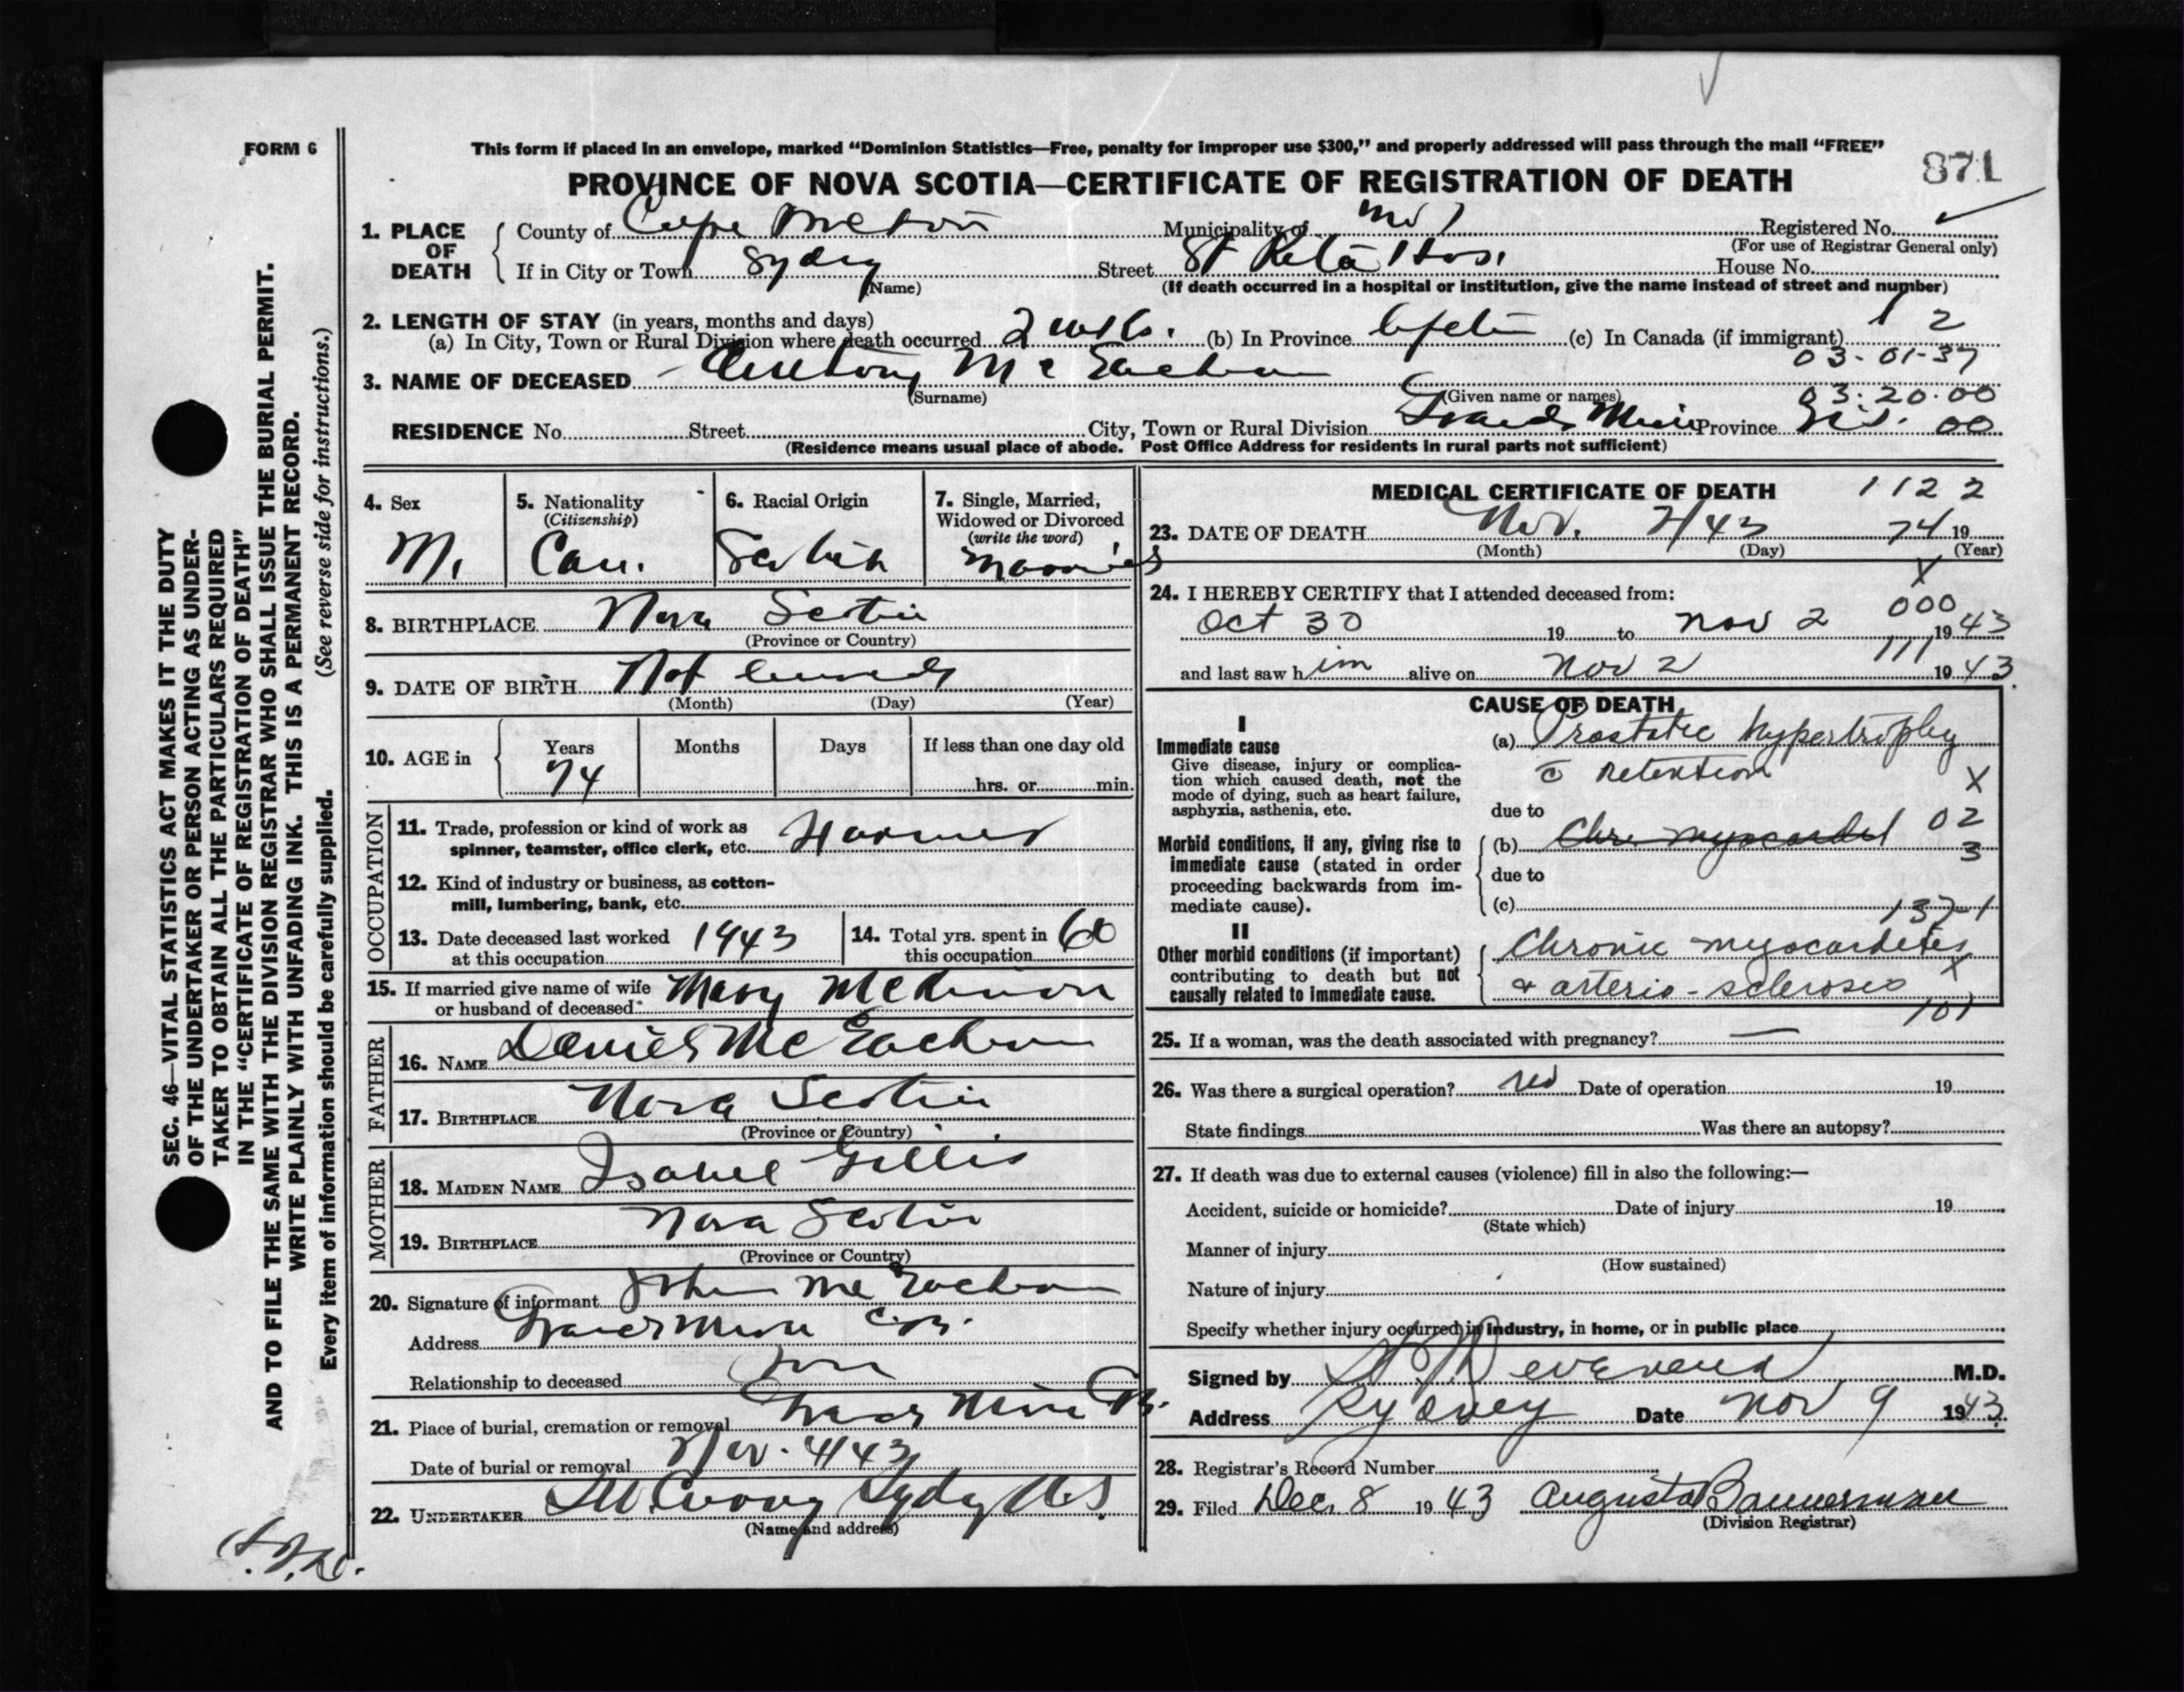 FORM 6
This form if placed in an envelope, marked “Dominion Statistics—Free, penalty for improper use $300,” and properly addressed will pass through the mail “FREE”
871
PROVINCE OF NOVA SCOTIA—CERTIFICATE OF REGISTRATION OF DEATH
1. PLACE OF DEATH
County of Cape Breton Municipality of Registered No.
(For use of Registrar General only)
If in City or Town Sydney Street St Rita Hos. House No.
(Name) (If death occurred in a hospital or institution, give the name instead of street and number)
2. LENGTH OF STAY (in years, months and days) 1 2
(a) In City, Town or Rural Division where death occurred 2 wks. (b) In Province Lifetime (c) In Canada (if immigrant)
03-01-37
3. NAME OF DECEASED Anthony McEachern
(Surname) (Given name or names) 03.20.00
RESIDENCE No. Street City, Town or Rural Division Grand Mira Province N.S. 00
(Residence means usual place of abode. Post Office Address for residents in rural parts not sufficient)
4. Sex M.
5. Nationality (Citizenship) Can.
6. Racial Origin Scotish
7. Single, Married, Widowed or Divorced (write the word) Married
8. BIRTHPLACE Nova Scotia
(Province or Country)
9. DATE OF BIRTH Not
(Month) (Day) (Year)
10. AGE in Years Months Days If less than one day old
74 hrs. or min.
OCCUPATION
11. Trade, profession or kind of work as spinner, teamster, office clerk, etc. Farmer
12. Kind of industry or business, as cotton-mill, lumbering, bank, etc.
13. Date deceased last worked at this occupation 1943
14. Total yrs. spent in this occupation 60
15. If married give name of wife or husband of deceased Mary McKinnon
FATHER
16. NAME Daniel McEachern
17. BIRTHPLACE Nova Scotia
(Province or Country)
MOTHER
18. MAIDEN NAME Isabel Gillis
19. BIRTHPLACE Nova Scotia
(Province or Country)
20. Signature of informant John McEachern
Address Grand Mira C.B.
Relationship to deceased Son
21. Place of burial, cremation or removal Grand Mira C.B.
Date of burial or removal Nov. 4 43
22. UNDERTAKER Sydney N.S.
(Name and address)
MEDICAL CERTIFICATE OF DEATH 1122
23. DATE OF DEATH Nov. 2/43 74 19
(Month) (Day) (Year)
X
24. I HEREBY CERTIFY that I attended deceased from:
000
Oct 30 19 to Nov 2 1943
111
and last saw him alive on Nov 2 1943
CAUSE OF DEATH
I
Immediate cause
Give disease, injury or complication which caused death, not the mode of dying, such as heart failure, asphyxia, asthenia, etc.
(a) Prostatic hypertrophy
c̄ retention
X
due to
02
Morbid conditions, if any, giving rise to immediate cause (stated in order proceeding backwards from immediate cause).
(b) Chr. myocardit
3
due to
(c)
137-1
II
Other morbid conditions (if important) contributing to death but not causally related to immediate cause.
Chronic myocarditis
X
& arterio-sclerosis
101
25. If a woman, was the death associated with pregnancy? —
26. Was there a surgical operation? no Date of operation 19
State findings Was there an autopsy?
27. If death was due to external causes (violence) fill in also the following:—
Accident, suicide or homicide? Date of injury 19
(State which)
Manner of injury
(How sustained)
Nature of injury
Specify whether injury occurred in industry, in home, or in public place
Signed by M.D.
Address Sydney Date Nov 9 1943
28. Registrar's Record Number
29. Filed Dec. 8 1943 Augusta Bannerman
(Division Registrar)
SEC. 46—VITAL STATISTICS ACT MAKES IT THE DUTY
OF THE UNDERTAKER OR PERSON ACTING AS UNDER-
TAKER TO OBTAIN ALL THE PARTICULARS REQUIRED
IN THE “CERTIFICATE OF REGISTRATION OF DEATH”
AND TO FILE THE SAME WITH THE DIVISION REGISTRAR WHO SHALL ISSUE THE BURIAL PERMIT.
WRITE PLAINLY WITH UNFADING INK. THIS IS A PERMANENT RECORD.
Every item of information should be carefully supplied. (See reverse side for instructions.)